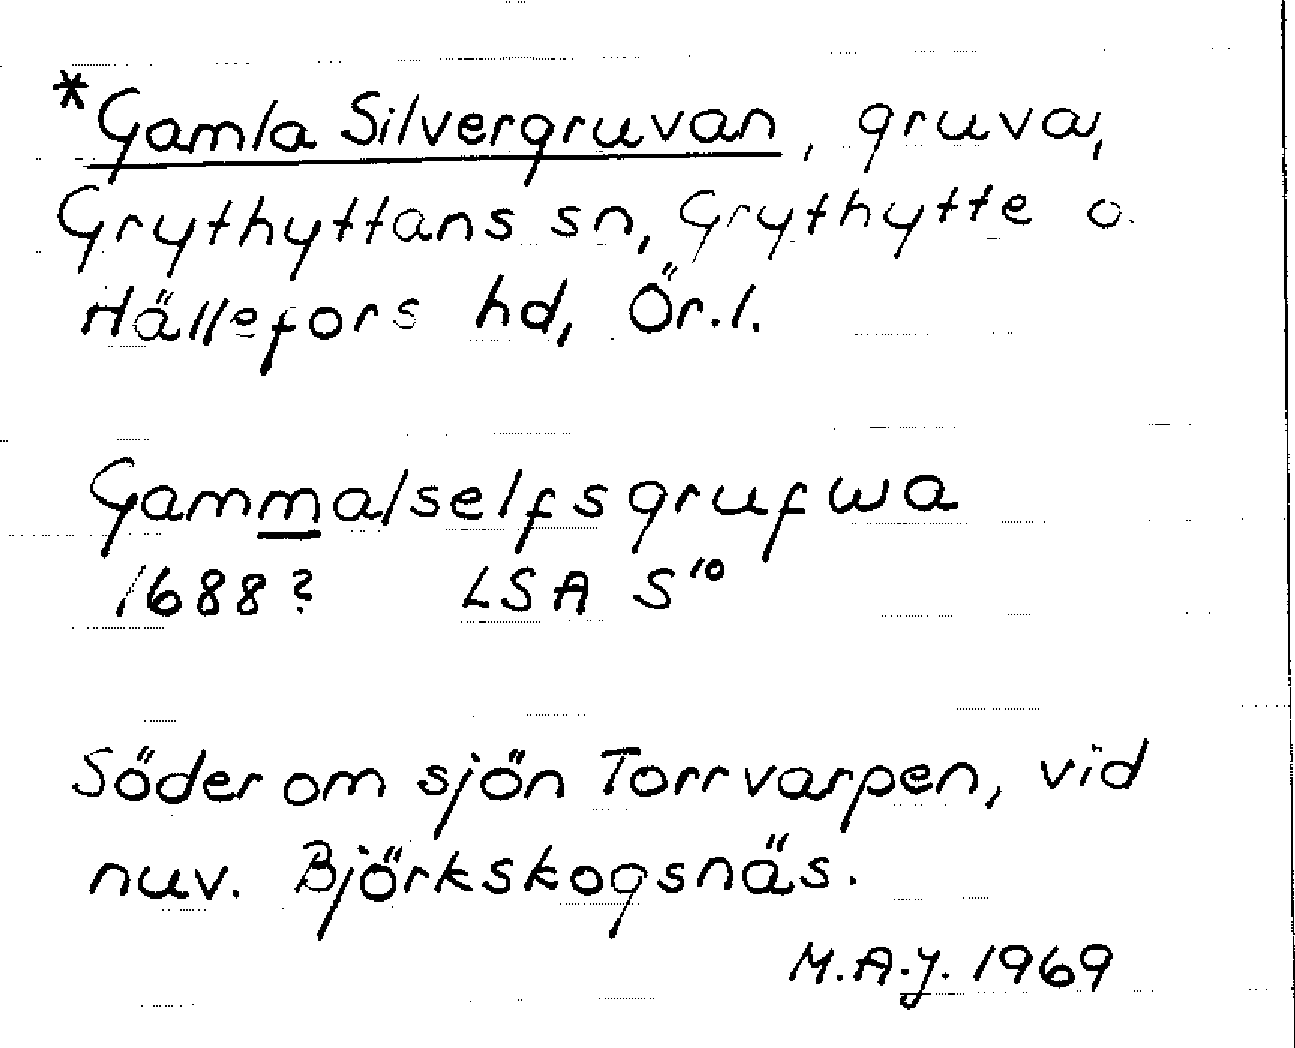 *Gamla Silvergruvan, gruva,
Grythyttans sn, Grythytte o.
Hällefors hd, Ör.l.
Gammalselfsgrufwa
1688? LSA S¹⁰
Söder om sjön Torrvarpen, vid
nuv. Björkskogsnäs.
M.A.J. 1969